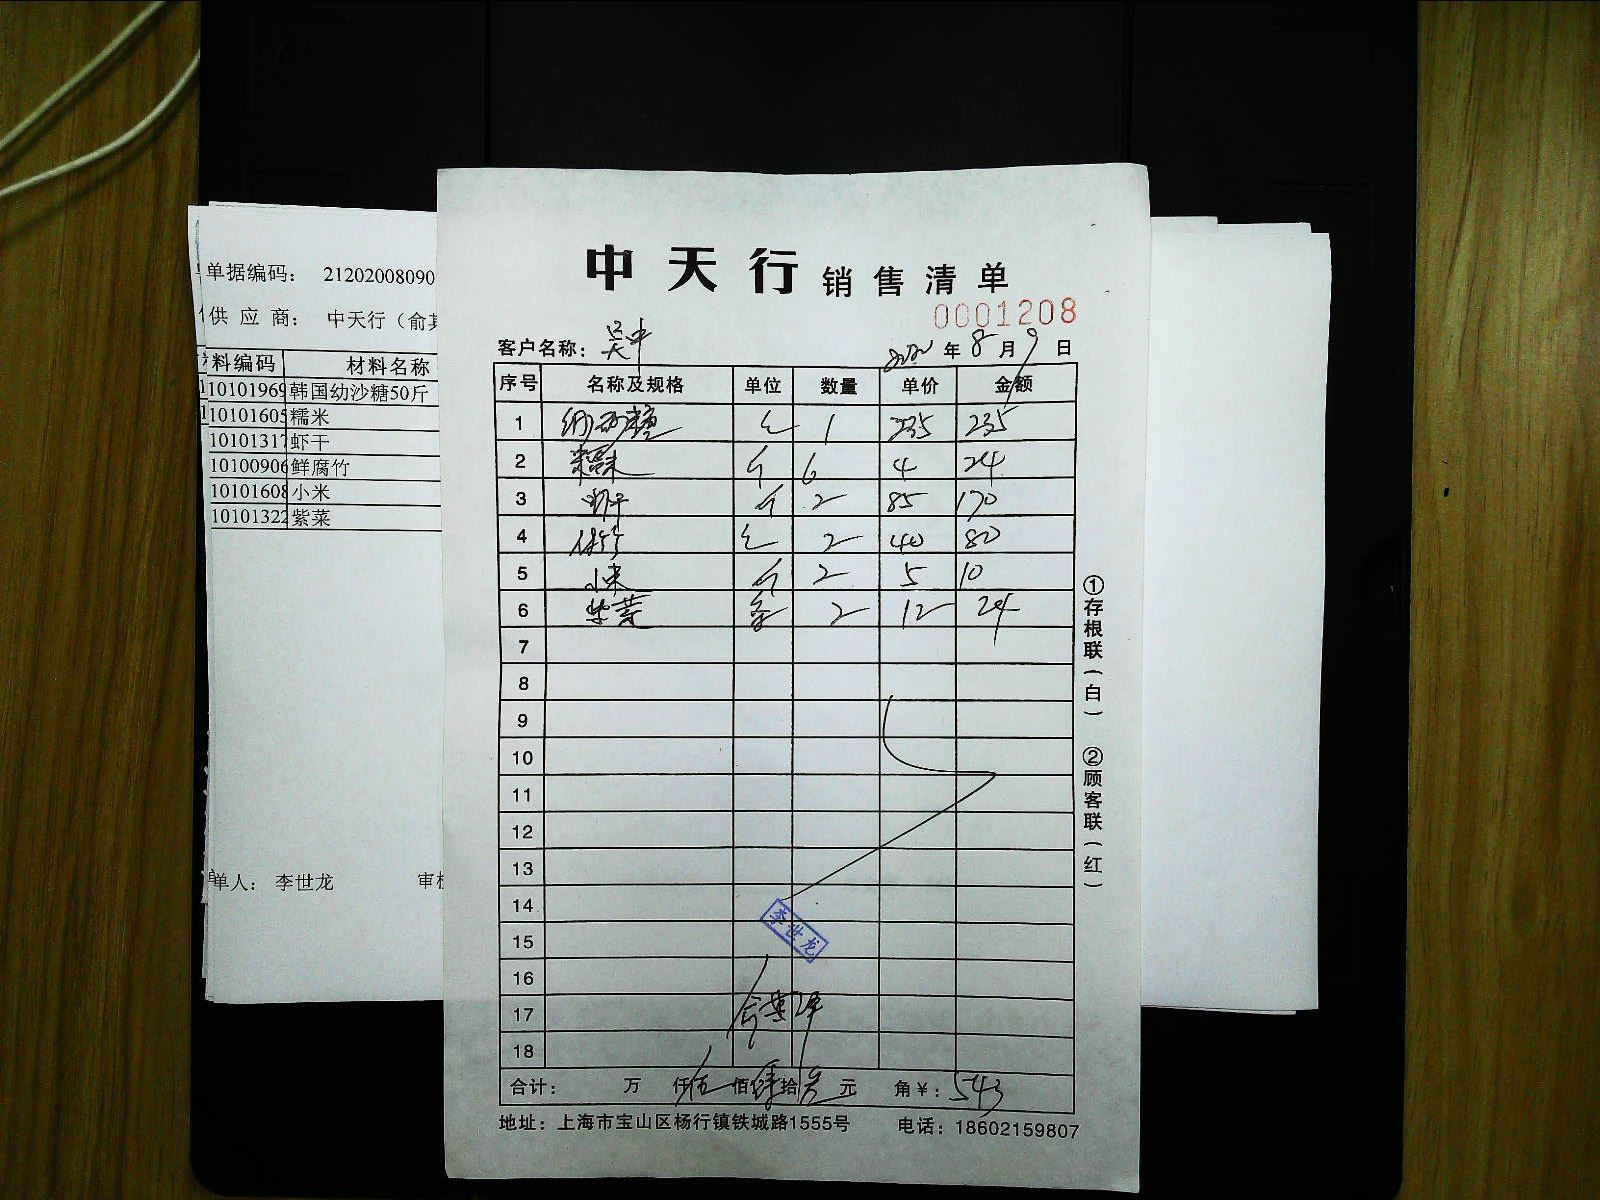 中天行 销售清单
0001208
客户名称：吴中 2020年8月9日
序号 名称及规格 单位 数量 单价 金额
1 幼砂糖 1 235 235
2 糯米 斤 6 4 24
3 虾干 斤 2 85 170
4 2 40 80
5 小米 斤 2 5 10
6 紫菜 2 12 24
7
8
9
10
11
12
13
14
15
16
17
18
李世龙
合计： 万 仟伍佰肆拾叁元 角￥：543
地址：上海市宝山区杨行镇铁城路1555号 电话：18602159807
①存根联（白） ②顾客联（红）
单据编码： 21202008090
供应商： 中天行（俞其
料编码 材料名称
10101969 韩国幼沙糖50斤
10101605 糯米
10101317 虾干
10100906 鲜腐竹
10101608 小米
10101322 紫菜
单人： 李世龙 审核